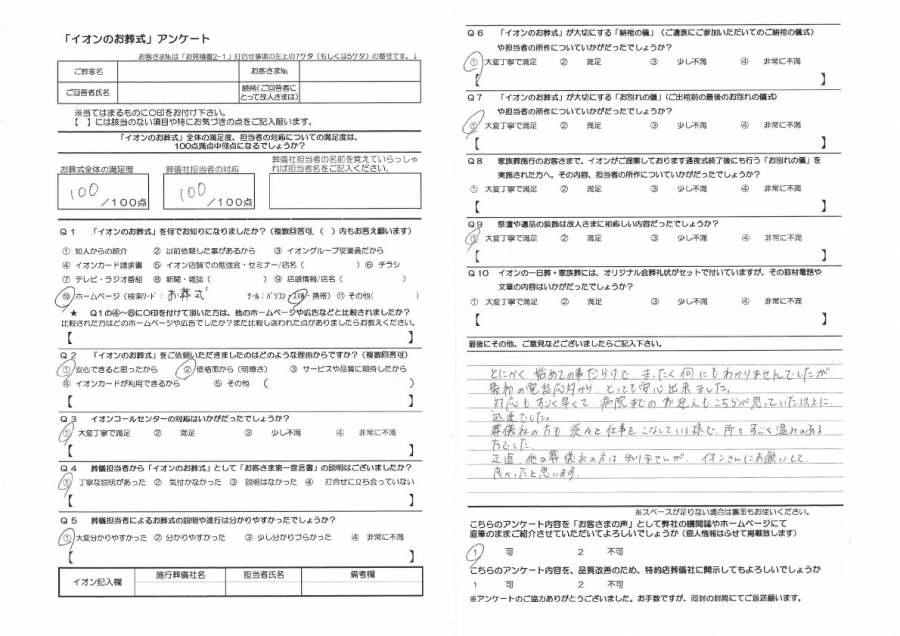 「イオンのお葬式」アンケート
お客さま№は「お見積書2-1」打合せ事項の左上の7ケタ（もしくは5ケタ）の番号です。↓
ご葬家名
お客さま№
ご回答者氏名
続柄(ご回答者に
とって故人さまは)
※当てはまるものに○印をお付け下さい。
【　】には該当のない項目や特にお気づきの点をご記入願います。
「イオンのお葬式」全体の満足度、担当者の対応についての満足度は、
100点満点中何点になるでしょうか？
お葬式全体の満足度
葬儀社担当者の対応
葬儀社担当者の名前を覚えていらっしゃ
れば担当者名をご記入ください。
100
/100点
100
/100点
Q1　「イオンのお葬式」を何でお知りになりましたか？（複数回答可、（　）内もお答え願います）
① 知人からの紹介　② 以前依頼した事があるから　③ イオングループ従業員だから
④ イオンカード請求書　⑤ イオン店舗での勉強会・セミナー/店名（　）　⑥ チラシ
⑦ テレビ・ラジオ番組　⑧ 新聞・雑誌（　）　⑨ 店頭情報/店名（　）
⑩ ホームページ（検索ﾜｰﾄﾞ：お葬式　ﾂｰﾙ：ﾊﾟｿｺﾝ・ｽﾏﾎ・携帯）⑪ その他（　）
★　Q1の④～⑩に○印を付けて頂いた方は、他のホームページや広告などと比較されましたか？
比較された方はどのホームページや広告でしたか？また比較し迷われた点がありましたらお教えください。
【　】
Q2　「イオンのお葬式」をご依頼いただきましたのはどのような理由からですか？（複数回答可）
① 安心できると思ったから　② 価格面から（明瞭さ）　③ サービスや品質に期待したから
④ イオンカードが利用できるから　⑤ その他　（
【　】
Q3　イオンコールセンターの対応はいかがだったでしょうか？
① 大変丁寧で満足　②　満足　③　少し不満　④　非常に不満
【　】
Q4　葬儀担当者から「イオンのお葬式」として「お客さま第一宣言書」の説明はございましたか？
① 丁寧な説明があった　② 気付かなかった　③ 説明はなかった　④ 打合せに立ち会っていない
【　】
Q5　葬儀担当者によるお葬式の説明や進行は分かりやすかったでしょうか？
① 大変分かりやすかった　② 分かりやすかった　③ 少し分かりづらかった　④ 非常に不満
【　】
イオン記入欄
施行葬儀社名
担当者氏名
備考欄
Q6　「イオンのお葬式」が大切にする「納棺の儀」（ご遺族にご参加いただいてのご納棺の儀式）
や担当者の所作についていかがだったでしょうか？
① 大変丁寧で満足　②　満足　③　少し不満　④　非常に不満
【　】
Q7　「イオンのお葬式」が大切にする「お別れの儀」（ご出棺前の最後のお別れの儀式）
や担当者の所作についていかがだったでしょうか？
① 大変丁寧で満足　②　満足　③　少し不満　④　非常に不満
【　】
Q8　家族葬施行のお客さまで、イオンがご提案しております通夜式終了後にも行う「お別れの儀」を
実施された方へ。その内容、担当者の所作についていかがだったでしょうか？
① 大変丁寧で満足　②　満足　③　少し不満　④　非常に不満
【　】
Q9　祭壇や遺品の装飾は故人さまに相応しい内容だったでしょうか？
① 大変丁寧で満足　②　満足　③　少し不満　④　非常に不満
【　】
Q10　イオンの一日葬・家族葬には、オリジナル会葬礼状がセットで付いていますが、その取材電話や
文章の内容はいかがだったでしょうか？
① 大変丁寧で満足　②　満足　③　少し不満　④　非常に不満
【　】
最後にその他、ご意見などございましたらご記入下さい。
とにかく 始めての事だらけで まったく何にもわかりませんでしたが
最初の電話応対から とっても安心出来ました。
対応もすごく早くて 病院までのお迎えもこちらが思っていた以上に
迅速でした。
葬儀社の方も 淡々と仕事をこなしている様で、所々すごく温みのある
方でした。
正直 他の葬儀社の方は知りませんが、イオンさんにお願いして
良かったと思います。
※スペースが足りない場合は裏面もお使いください。
こちらのアンケート内容を「お客さまの声」として弊社の機関誌やホームページにて
直筆のままご紹介させていただいてよろしいでしょうか（個人情報はふせて掲載致します）
1　可　2　不可
こちらのアンケート内容を、品質改善のため、特約店葬儀社に開示してもよろしいでしょうか
1　可　2　不可
※アンケートのご協力ありがとうございました。お手数ですが、同封の封筒にてご返送願います。